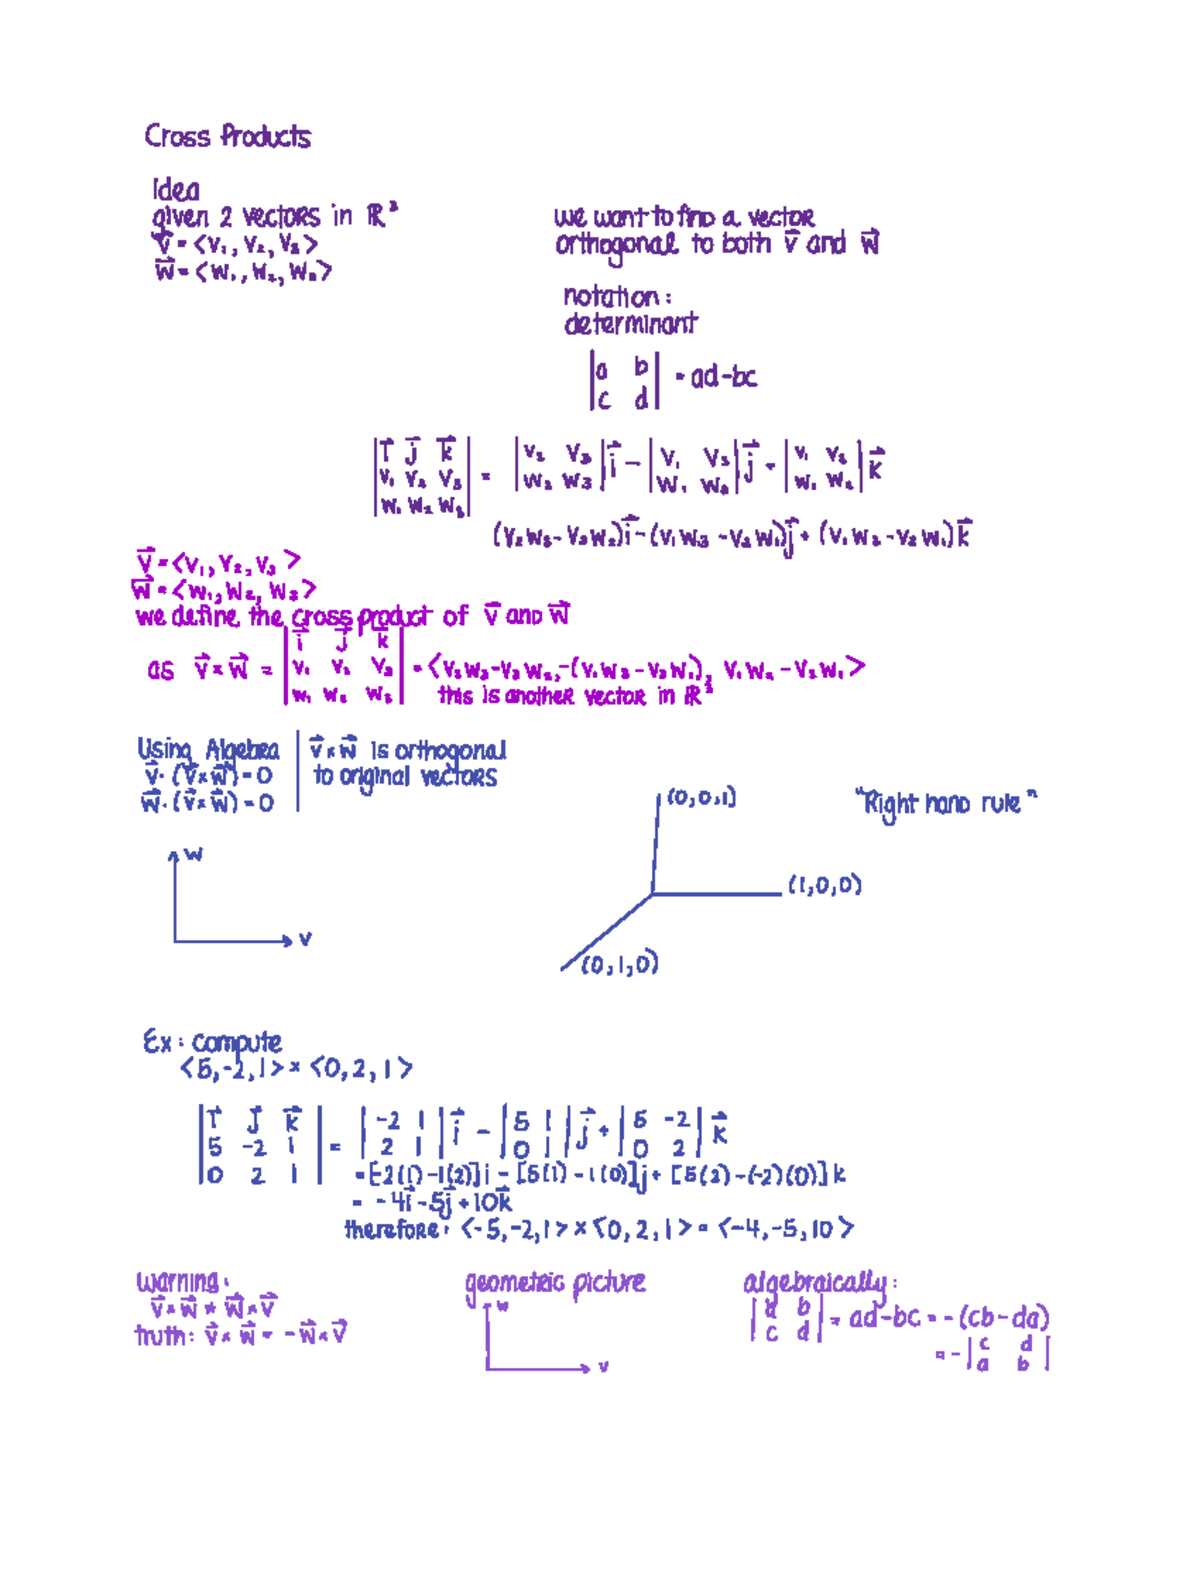 Cross Products
Idea
given 2 vectors in ℝ³
v⃗ = <v₁, v₂, v₃>
w⃗ = <w₁, w₂, w₃>
we want to find a vector
orthogonal to both v⃗ and w⃗
notation:
determinant
|a b|
|c d| = ad-bc
|i⃗ j⃗ k⃗|
|v₁ v₂ v₃| = |v₂ v₃; w₂ w₃| i⃗ - |v₁ v₃; w₁ w₃| j⃗ + |v₁ v₂; w₁ w₂| k⃗
|w₁ w₂ w₃|
(v₂w₃-v₃w₂)i⃗-(v₁w₃-v₃w₁)j⃗+(v₁w₂-v₂w₁)k⃗
v⃗ = <v₁, v₂, v₃>
w⃗ = <w₁, w₂, w₃>
we define the cross product of v⃗ and w⃗
|i⃗ j⃗ k⃗|
as v⃗×w⃗ = |v₁ v₂ v₃| = <v₂w₃-v₃w₂,-(v₁w₃-v₃w₁), v₁w₂-v₂w₁>
|w₁ w₂ w₃| this is another vector in ℝ³
Using Algebra | v⃗×w⃗ is orthogonal
v⃗·(v⃗×w⃗)=0 | to original vectors
w⃗·(v⃗×w⃗)=0
(0,0,1)
"Right hand rule"
w
(1,0,0)
v
(0,1,0)
Ex: compute
<5,-2,1> × <0,2,1>
|i⃗ j⃗ k⃗|
|5 -2 1| = |-2 1; 2 1| i⃗ - |5 1; 0 1| j⃗ + |5 -2; 0 2| k⃗
|0 2 1| =[-2(1)-1(2)]i - [5(1)-1(0)]j+ [5(2)-(-2)(0)]k
= -4i⃗-5j⃗+10k⃗
therefore: <-5,-2,1> × <0,2,1> = <-4,-5,10>
warning:
v⃗×w⃗ ≠ w⃗×v⃗
truth: v⃗×w⃗ = -w⃗×v⃗
geometric picture
w
v
algebraically:
|a b|
|c d| = ad-bc = -(cb-da)
= -|c d|
|a b|